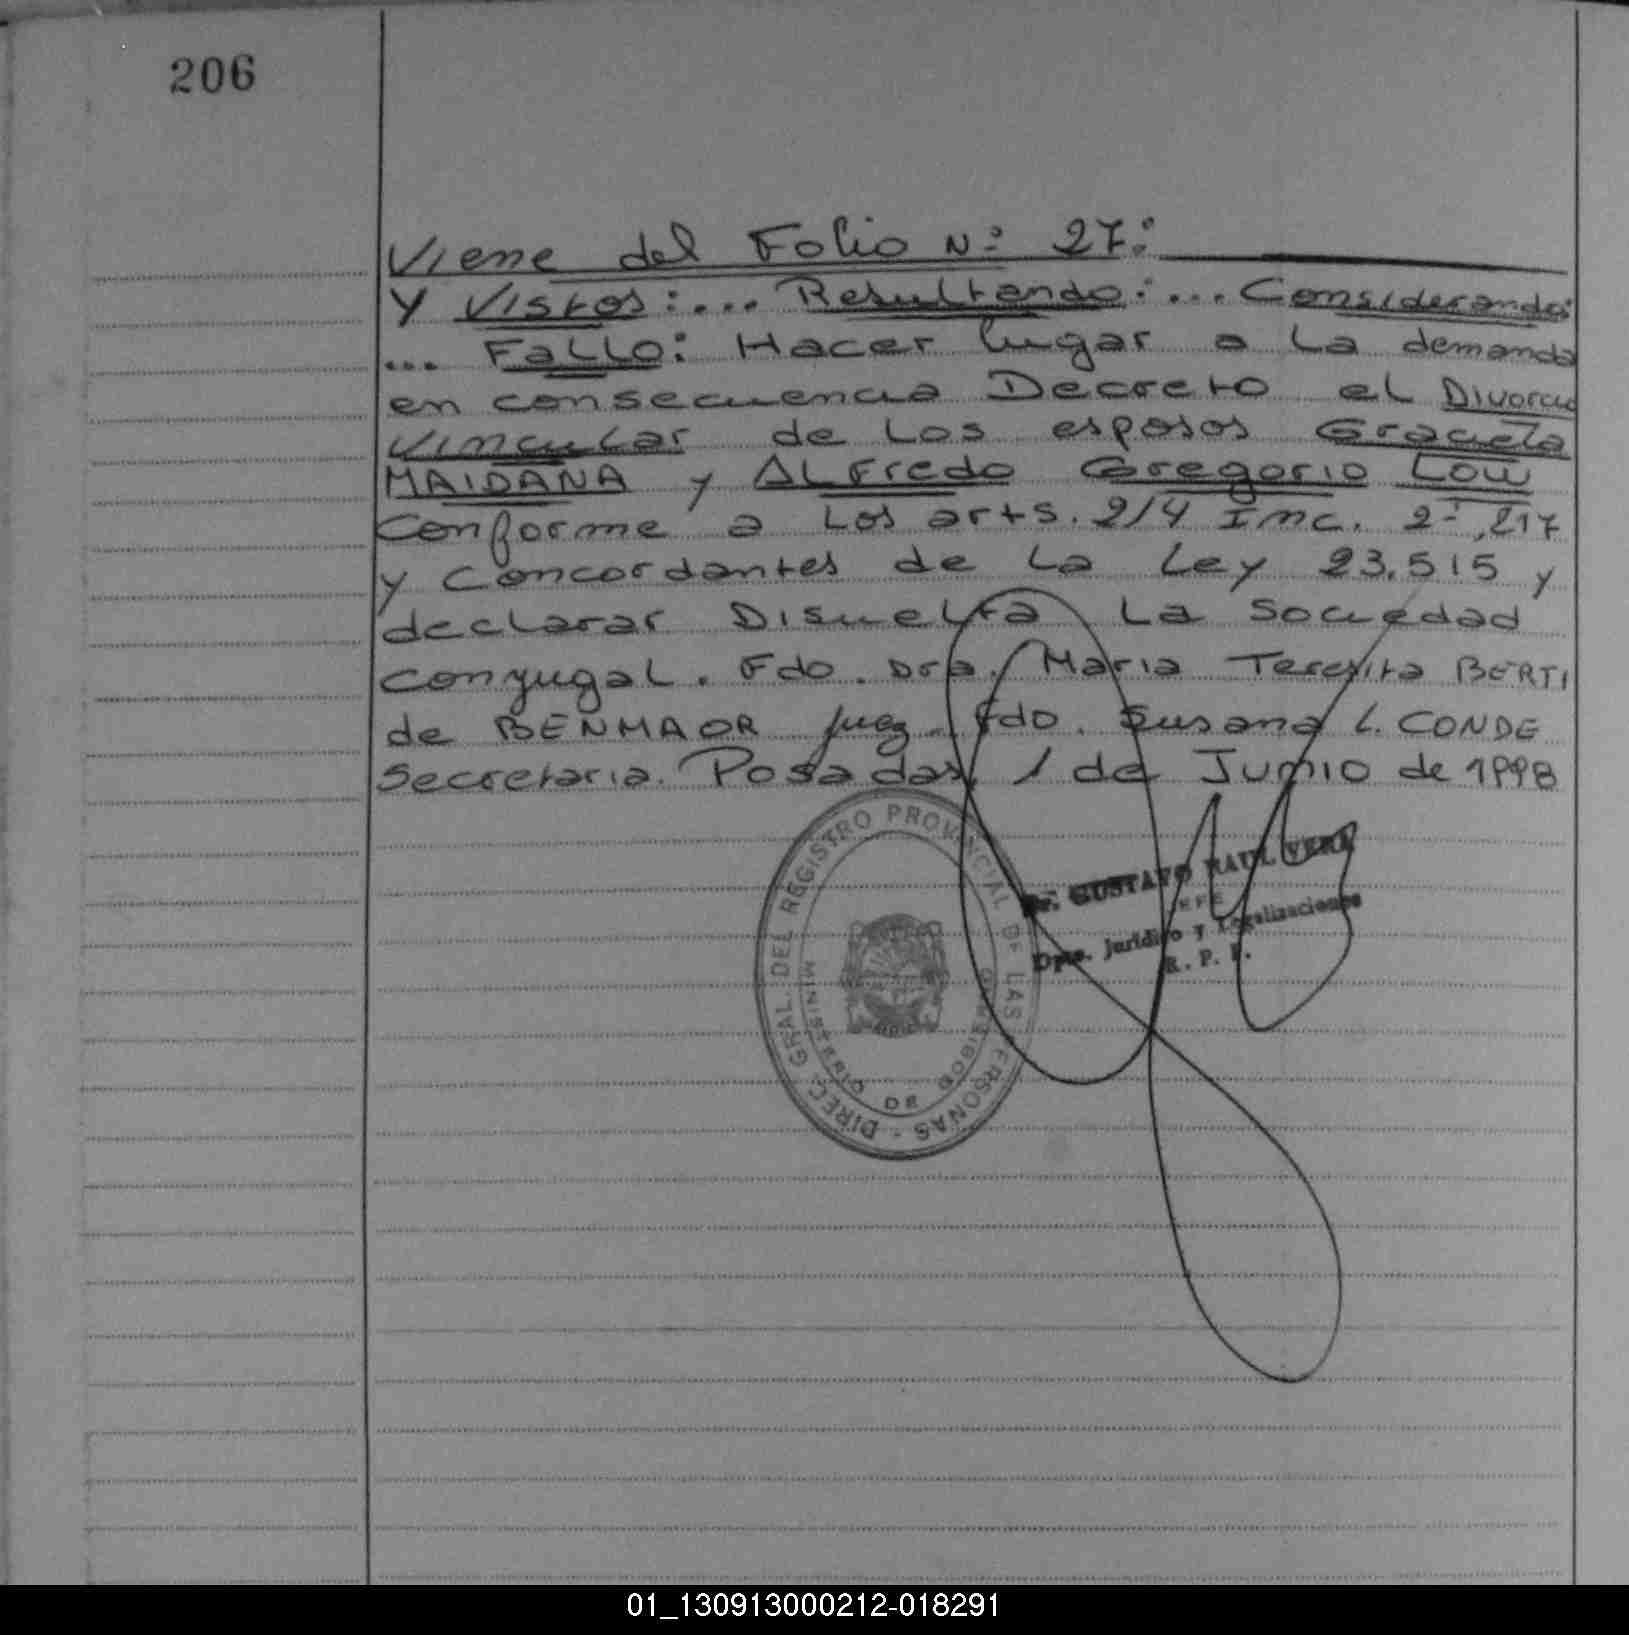 206
Viene del Folio N: 27:
Y Vistos:... Resultando:... Considerando:
... Fallo: Hacer lugar a la demanda
en consecuencia Decreto el Divorcio
Vincular de los esposos Graciela
MAIDANA y Alfredo Gregorio Low
conforme a los arts. 214 Inc. 2º, 217
y concordantes de la Ley 23.515 y
declarar Disuelta la Sociedad
conyugal. Fdo. Dra. Maria Teresita BERTI
de BENMAOR juez. Fdo. Susana L. CONDE
Secretaria. Posadas, 1 de Junio de 1998
DIREC. GRAL. DEL REGISTRO PROVINCIAL DE LAS PERSONAS -
MINISTERIO DE GOBIERNO
Dr. GUSTAVO RAUL VERA
JEFE
Dpto. Jurídico y Legalizaciones
R. P. P.
01_130913000212-018291